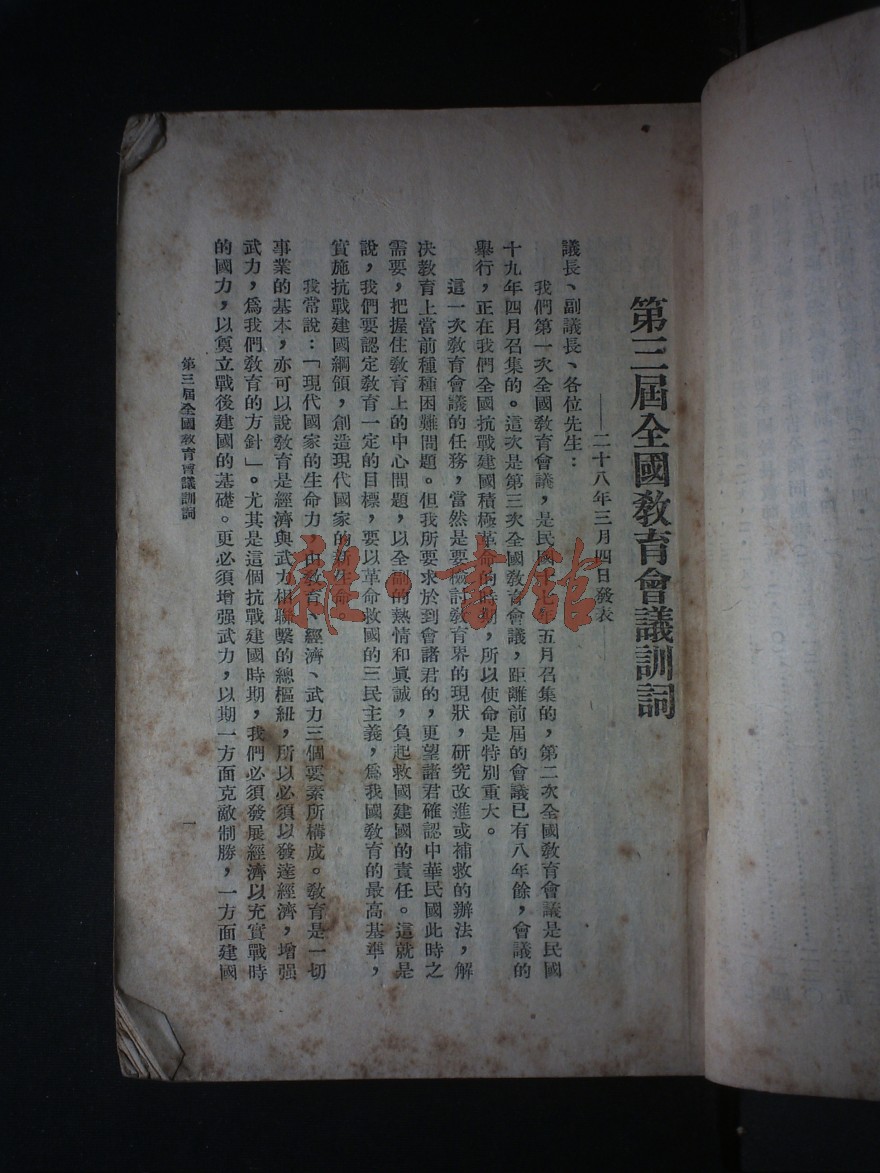 第三屆全國教育會議訓詞
——二十八年三月四日發表——
議長、副議長、各位先生：
我們第一次全國教育會議，是民國 年五月召集的，第二次全國教育會議是民國
十九年四月召集的。這次是第三次全國教育會議，距離前屆的會議已有八年餘，會議的
舉行，正在我們全國抗戰建國積極革命的時期，所以使命是特別重大。
這一次教育會議的任務，當然是要檢討教育界的現狀，研究改進或補救的辦法，解
決教育上當前種種困難問題。但我所要求於到會諸君的，更望諸君確認中華民國此時之
需要，把握住教育上的中心問題，以全副的熱情和眞誠，負起救國建國的責任。這就是
說，我們要認定教育一定的目標，要以革命救國的三民主義，爲我國教育的最高基準，
實施抗戰建國綱領，創造現代國家的新生命。
我常說：「現代國家的生命力，由教育、經濟、武力三個要素所構成。教育是一切
事業的基本，亦可以說教育是經濟與武力相聯繫的總樞紐，所以必須以發達經濟，增强
武力，爲我們教育的方針」。尤其是這個抗戰建國時期，我們必須發展經濟以充實戰時
的國力，以奠立戰後建國的基礎。更必須增强武力，以期一方面克敵制勝，一方面建國
第三屆全國教育會議訓詞
一
雜·書館